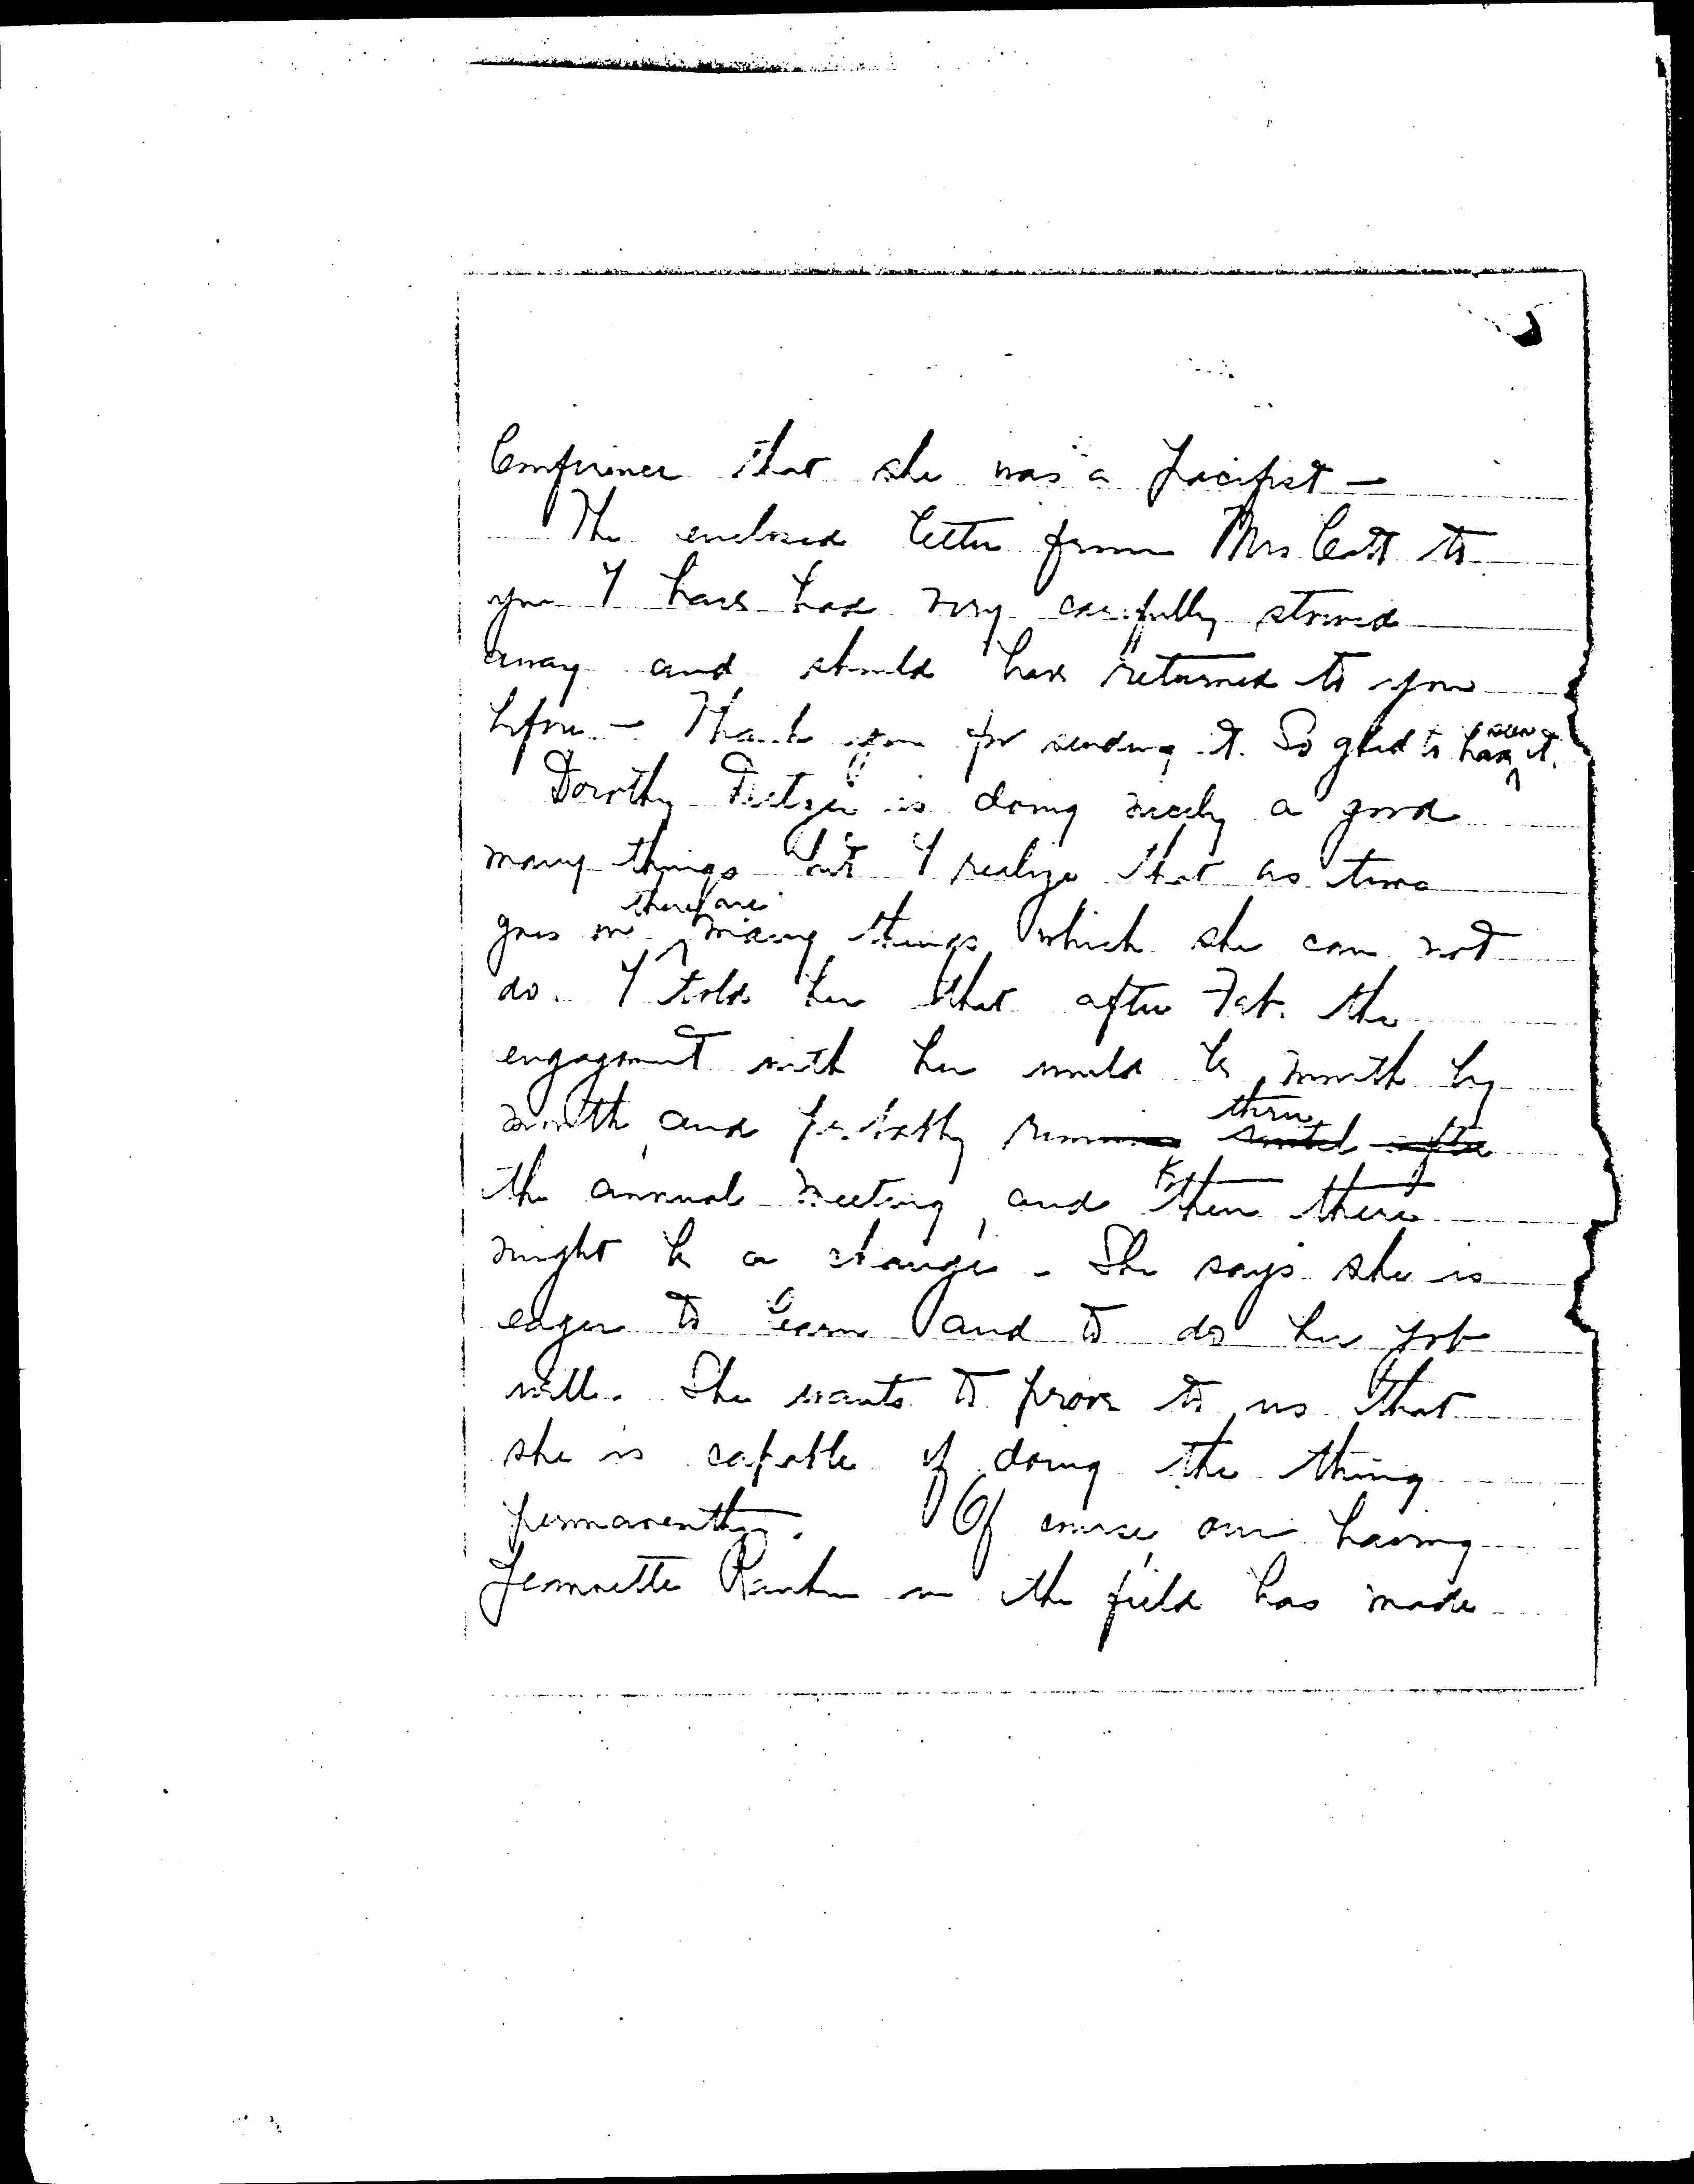 Conference that she was a pacifist —
The enclosed letter from Mrs Catt to
you I have had very carefully stored
away and should have returned to you
before — Thank you for sending it. So glad to have seen it.
Dorothy Detzer is doing nicely a good
many things but I realize that as time
goes on there are many things which she can not
do. I told her that after Feb. the
engagement with her would be month by
month and probably run thru until after
the annual meeting, and then there
might be a change. She says she is
eager to learn and to do her job
well. She wants to prove to us that
she is capable of doing the thing
permanently. Of course, our having
Jeannette Rankin in the field has made